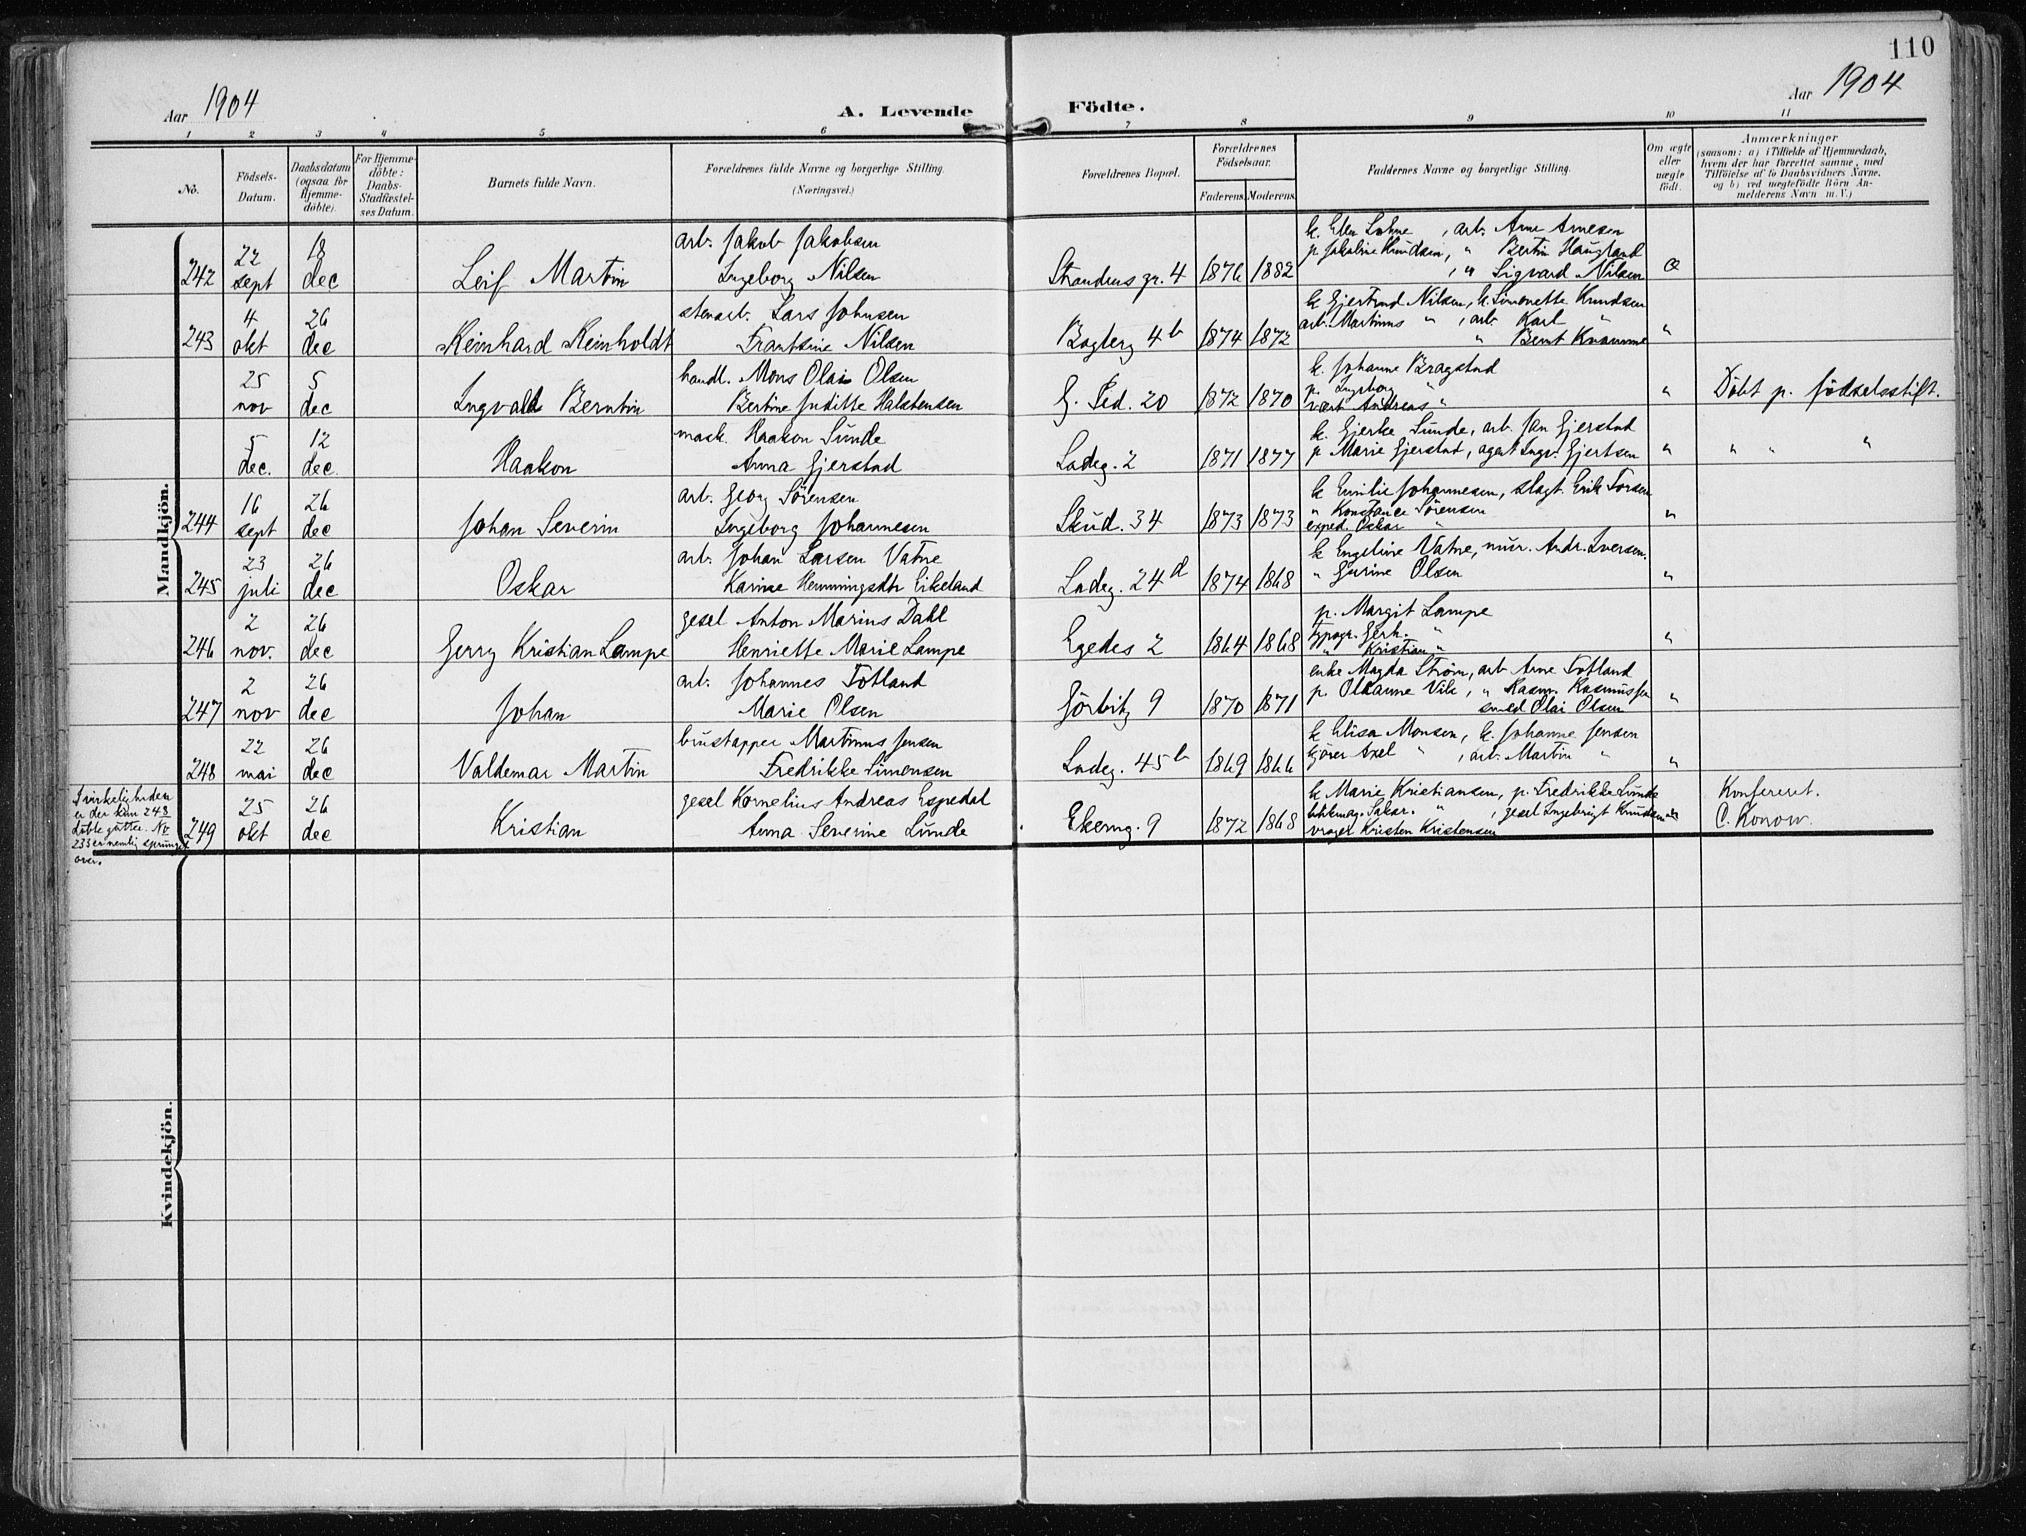 110
Aar 1904
A. Levende Födte.
Aar 1904
1 2 3 4 5 6 7 8 9 10 11
No.
Födsels-Datum.
Daabsdatum (ogsaa for Hjemme-döbte).
For Hjemme-döbte: Daabs-Stadfæstel-ses Datum.
Barnets fulde Navn.
Forældrenes fulde Navne og borgerlige Stilling. (Næringsvei.)
Forældrenes Bopæl.
Forældrenes Födselsaar.
Faderens. Moderens.
Faddernes Navne og borgerlige Stilling.
Om ægte eller uægte födt.
Anmærkninger
(saasom: a) i Tilfælde af Hjemmedaab, hvem der har forrettet samme, med Tilföielse af to Daabsvidners Navne, og b) ved uægtefödte Börn An-melderens Navn m. V.)
Mandkjön.
242 22 sept 18 dec Leif Martin
arb. Jakob Jakobsen
Ingeborg Nilsen
Strandens gr. 4 1876 1882
k. Elen Lohne, arb. Arne Arnesen
p. Jakobine Knudsen, " Bertin Haugland
, " Sigvard Nilsen
243 4 okt 26 dec Reinhard Reinholdt
stenarb. Lars Johnsen
Frantsine Nilsen
Bagterg 4b 1874 1872
k Gjertrud Nilsen, k. Simonette Knudsen
arb. Martinus ", arb. Karl "
" Bernt Kvamme "
25 nov 5 dec Ingvald Berntin
handl. Mons Olai Olsen
Bertine Juditte Halstensen
G. Ped. 20 1872 1870
k. Johanne Bragstad
p. Ingeborg "
vært Andreas "
" Döbt p. födselsstift.
5 dec. 12 dec. Haakon
mask. Haakon Sunde
Anna Gjerstad
Ladeg. 2 1871 1877
k. Gjerke Sunde, arb. Jan Gjerstad
p Marie Gjerstad, agent Ingv. Gjertsen
" " " "
244 16 sept 26 dec Johan Severin
arb. Georg Sörensen
Ingeborg Johannesen
Skud. 34 1873 1873
k Emilie Johannesen, slagt. Erik Torsen
" Konstance Sörensen
exped. Oskar "
"
245 23 juli 26 dec Oskar
arb. Johan Larsen Vatne
Karine Henningsdtr Eikeland
Ladeg. 24d 1874 1868
k Engeline Vatne, mur. Andr. Iversen.
" Gurine Olsen
"
246 2 nov. 26 dec Gerry Kristian Lampe
gesel Anton Marius Dahl
Henriette Marie Lampe
Egedes 2 1864 1868
p. Margit Lampe
typogr. Gerh. "
" Kristian "
"
247 2 nov 26 dec Johan
arb. Johannes Totland
Marie Olsen
Jörbitz 9 1870 1871
enke Magda Ström, arb Arne Totland
p. Oleanne Vik, " Rasm. Rasmussen
smed Olai Olsen
"
248 22 mai 26 dec Valdemar Martin
brustapper Martinus Jensen
Fredrikke Simonsen
Ladeg. 45b 1869 1866
k Elisa Monsen, k. Johanne Jensen
kjörer Axel ", arb. Martin "
"
I virkeligheden er der kun 248 döbte gutter. No 233 er nemlig sprunget over.
249 25 okt 26 dec Kristian
gesel Kornelius Andreas Espedal
Anna Severine Lunde
Ekerng. 9 1872 1868
k Marie Kristiansen, p. Fredrikke Lunde
Oskar. ", gesel Ingebrigt Knudsen
vrager Kristen Kristensen
Konfereret.
C. Konow.
Kvindekjön.